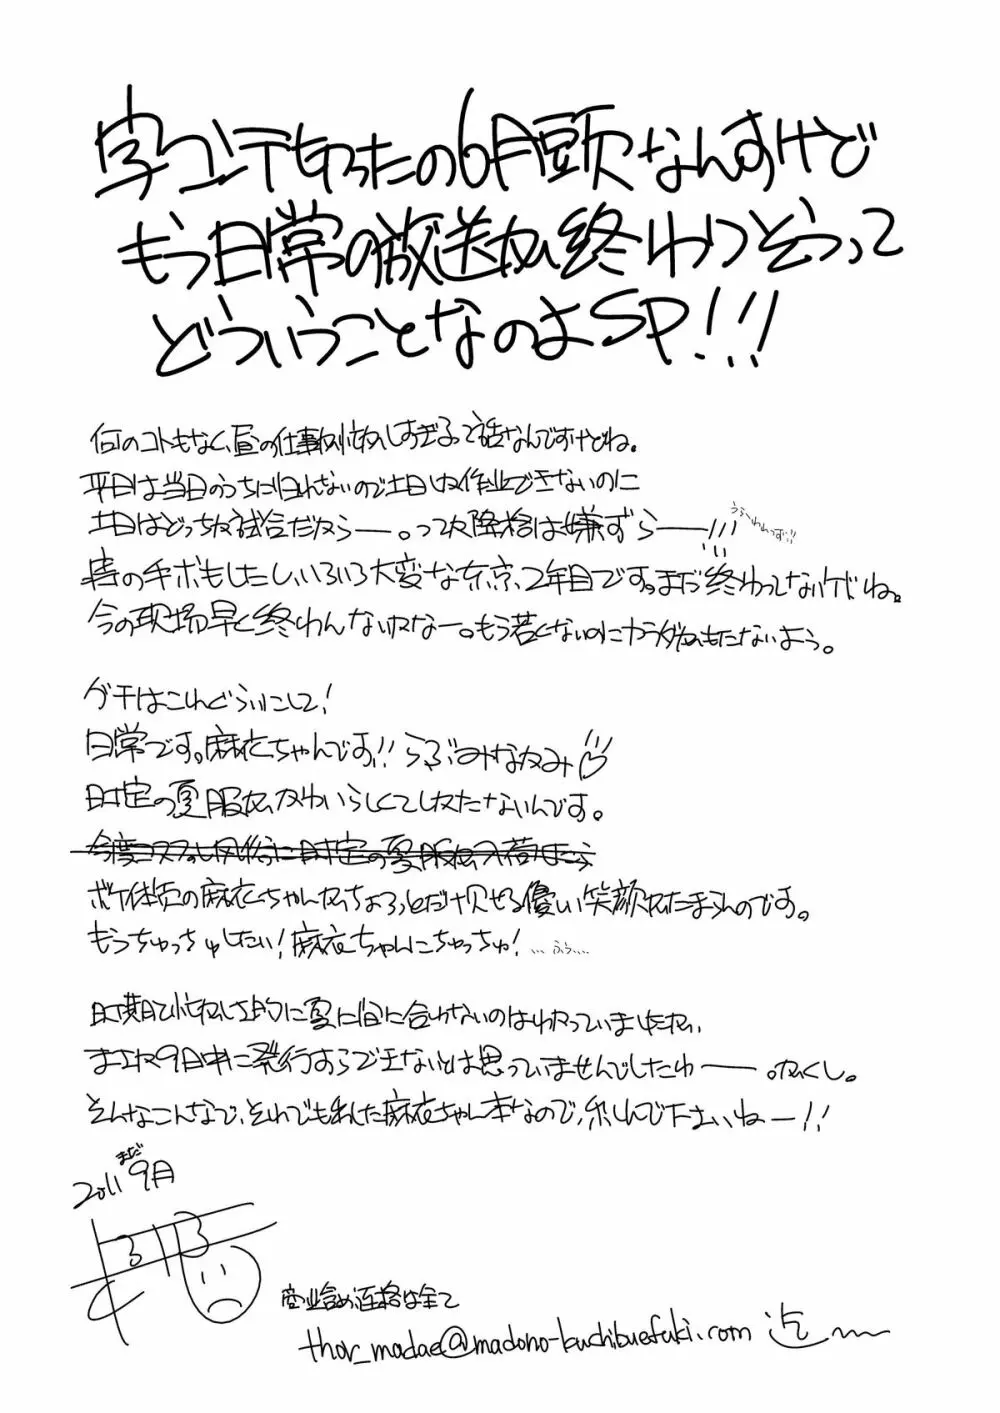 字コンテ切ったの6月頭なんすけど
もう日常の放送が終わりそうって
どういうことなのよSP!!!
何のコトもなく、昼の仕事が忙しすぎるって話なんですけどね。
平日は当日のうちに帰れないので土日しか作業できないのに
土日はどっちか試合だからー。ってか降格は嫌ずらー!!!
妻の手术もしたしいろいろ大変な東京、2年目です。まだ終わってないケドね。
今の現場早く終わんないかなー。もう若くないのにカラダがもたないよう。
グチはこれぐらいにして!
日常です。麻衣ちゃんです!! らぶみなかみ♡
時定の夏服がかわいらしくてしかたないんです。
今度コスプレ風俗に時定の夏服が入荷したら
ボケ体質の麻衣ちゃんがちょろっとだけ見せる優しい笑顔がたまらんのです。
もうちゅっちゅしたい!麻衣ちゃんにちゅっちゅ! …ふぅ…
時期と忙しさ的に夏に間に合わないのはわかっていましたが、
まさか9月中に発行すらできないとは思っていませんでしたわー。がくし。
そんなこんなで、それでも出した麻衣ちゃん本なので、楽しんで下さいねー!!
2011 まだ9月
商業含め連絡は全て
thor_madae@madono-kuchibuefuki.com 迄